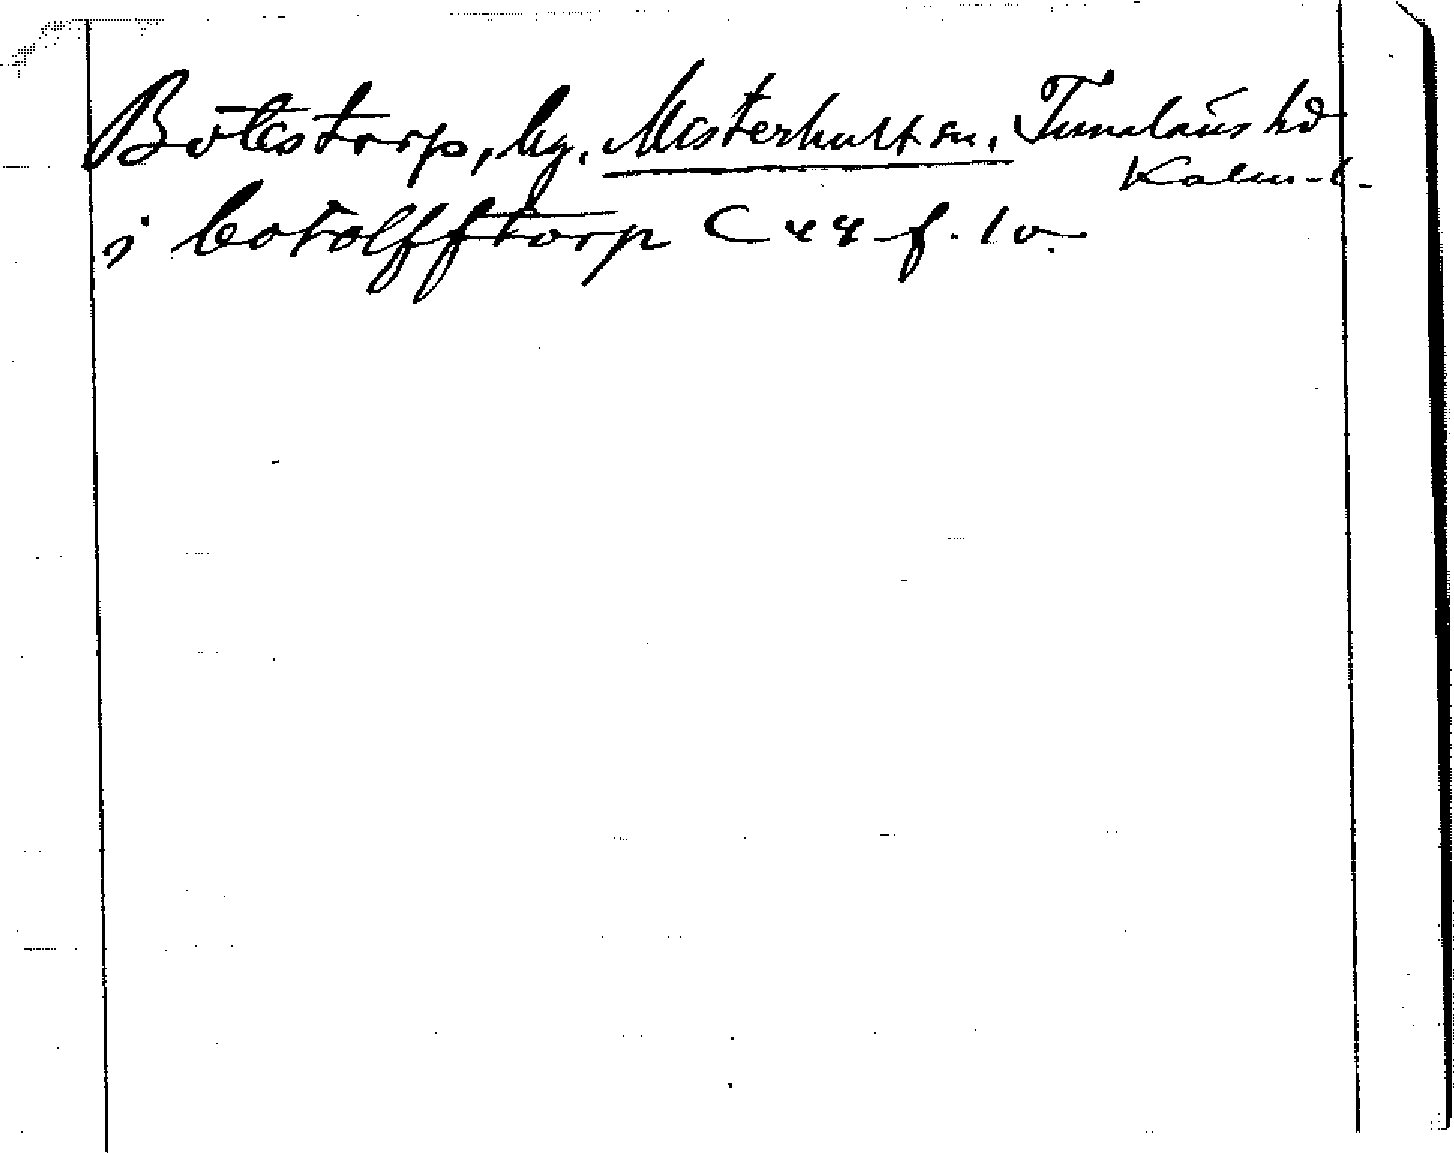 Botestorp, by. Misterhult sn. Tunaläns hd
Kalm. l.
i botolfftorp C 48 f. 10.